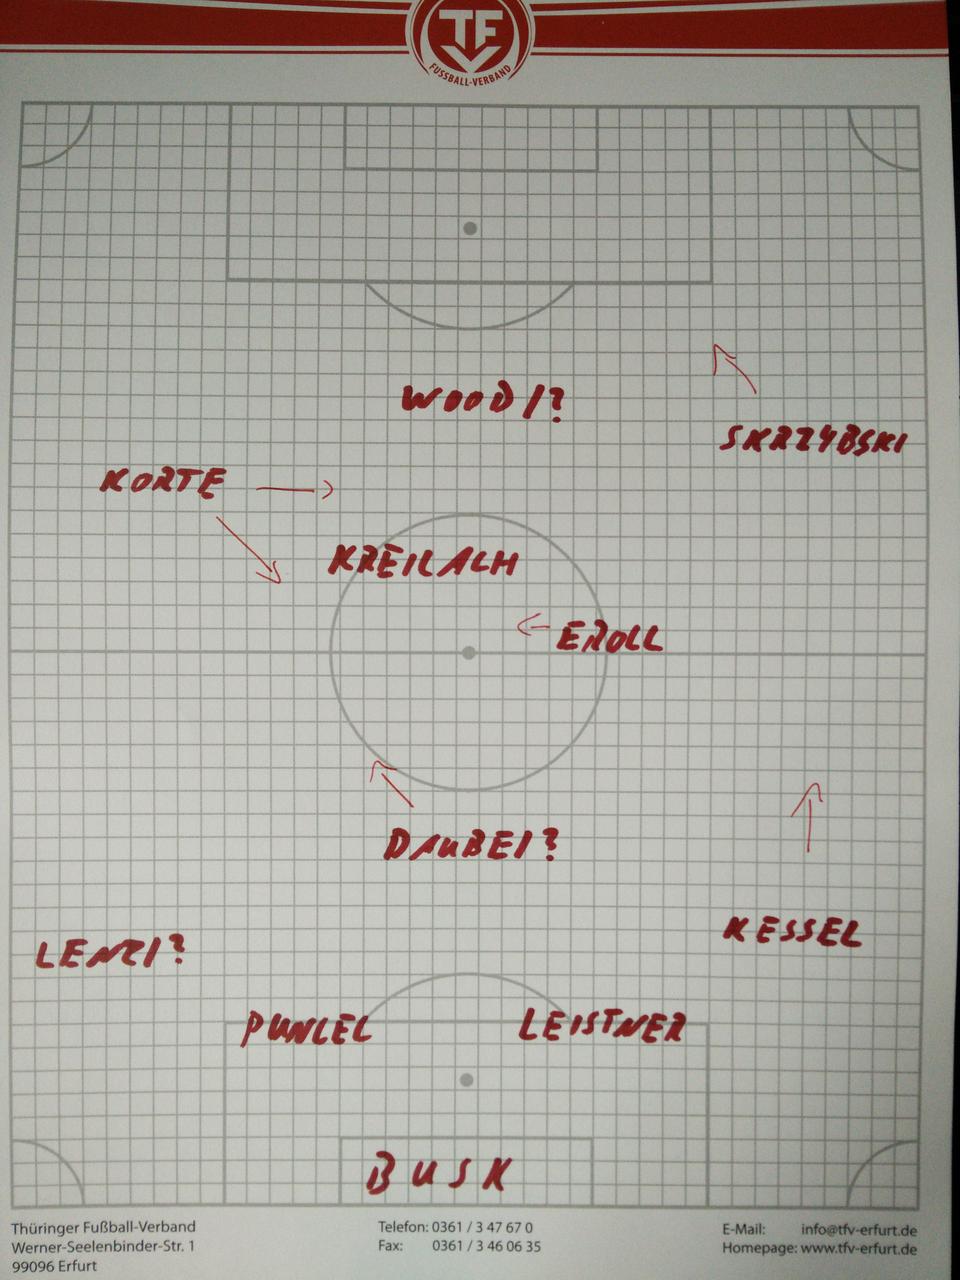 TF
FUSSBALL-VERBAND
WOODI?
SKRZYBSKI
KORTE
KREILACH
EROLL
DAUBEI?
KESSEL
LENZI?
PUNCEL
LEISTNER
BUSK
Thüringer Fußball-Verband
Werner-Seelenbinder-Str. 1
99096 Erfurt
Telefon: 0361 / 3 47 67 0
Fax: 0361 / 3 46 06 35
E-Mail: info@tfv-erfurt.de
Homepage: www.tfv-erfurt.de